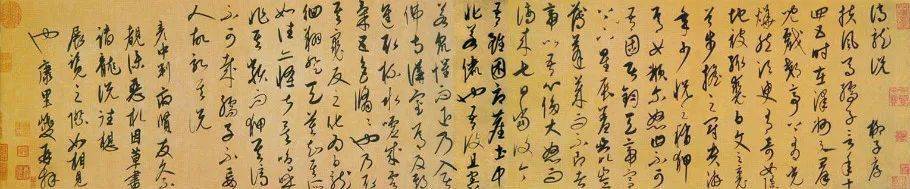 謫龍說 柳子厚
扶風馬孺子言年十
四五時在澤州與群
兒戲郊亭上頃
然有奇女墜
地被緅裘白文之裏
首步搖之冠貴游
年少駭之稍狎
焉女頩爾怒曰不可
吾故居鈞天帝宮
下上星辰呼噓陰陽
薄蓬萊羞崑崙而不即者
帝以吾心侈大怒而
謫來七日當復今
吾雖辱塵土中
非若儷也吾復且害
若衆恐而退乃入居
佛寺講室焉及期
進取杯水噓成雲
氣五色翛翛也乃取
裘反之化為白龍
徊翔登天莫知其所終
亦怪甚矣嗚呼
非其類而狎其謫
不可哉孺子不妄
人故記其說
彥中判府友久不
覩余惡札因草書
謫龍說並想
展覽之際如相見
也 康里巎再拜